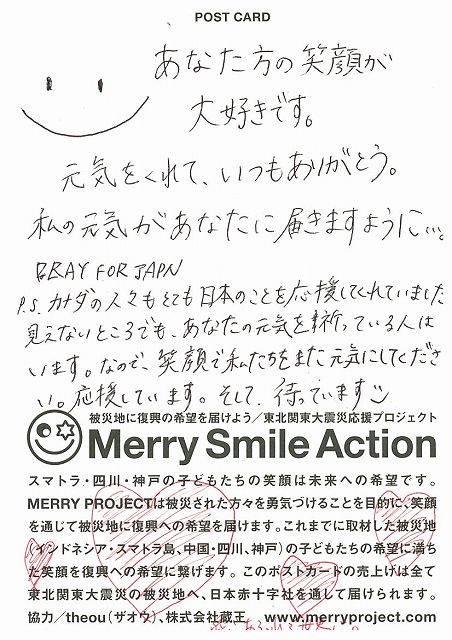 POST CARD
あなた方の笑顔が
大好きです。
元気をくれて、いつもありがとう。
私の元気があなたに届きますように…。
PRAY FOR JAPN
P.S. カナダの人々もとても日本のことを応援してくれていました
見えないところでも、あなたの元気を祈っている人は
います。なので、笑顔で私たちをまた元気にしてくださ
い。応援しています。そして、待っています
被災地に復興の希望を届けよう／東北関東大震災応援プロジェクト
Merry Smile Action
スマトラ・四川・神戸の子どもたちの笑顔は未来への希望です。
MERRY PROJECTは被災された方々を勇気づけることを目的に、笑顔
を通じて被災地に復興への希望を届けます。これまでに取材した被災地
（インドネシア・スマトラ島、中国・四川、神戸）の子どもたちの希望に満ち
た笑顔を復興への希望に繋げます。このポストカードの売上げは全て
東北関東大震災の被災地へ、日本赤十字社を通して届けられます。
協力／theou（ザオウ）、株式会社蔵王 www.merryproject.com